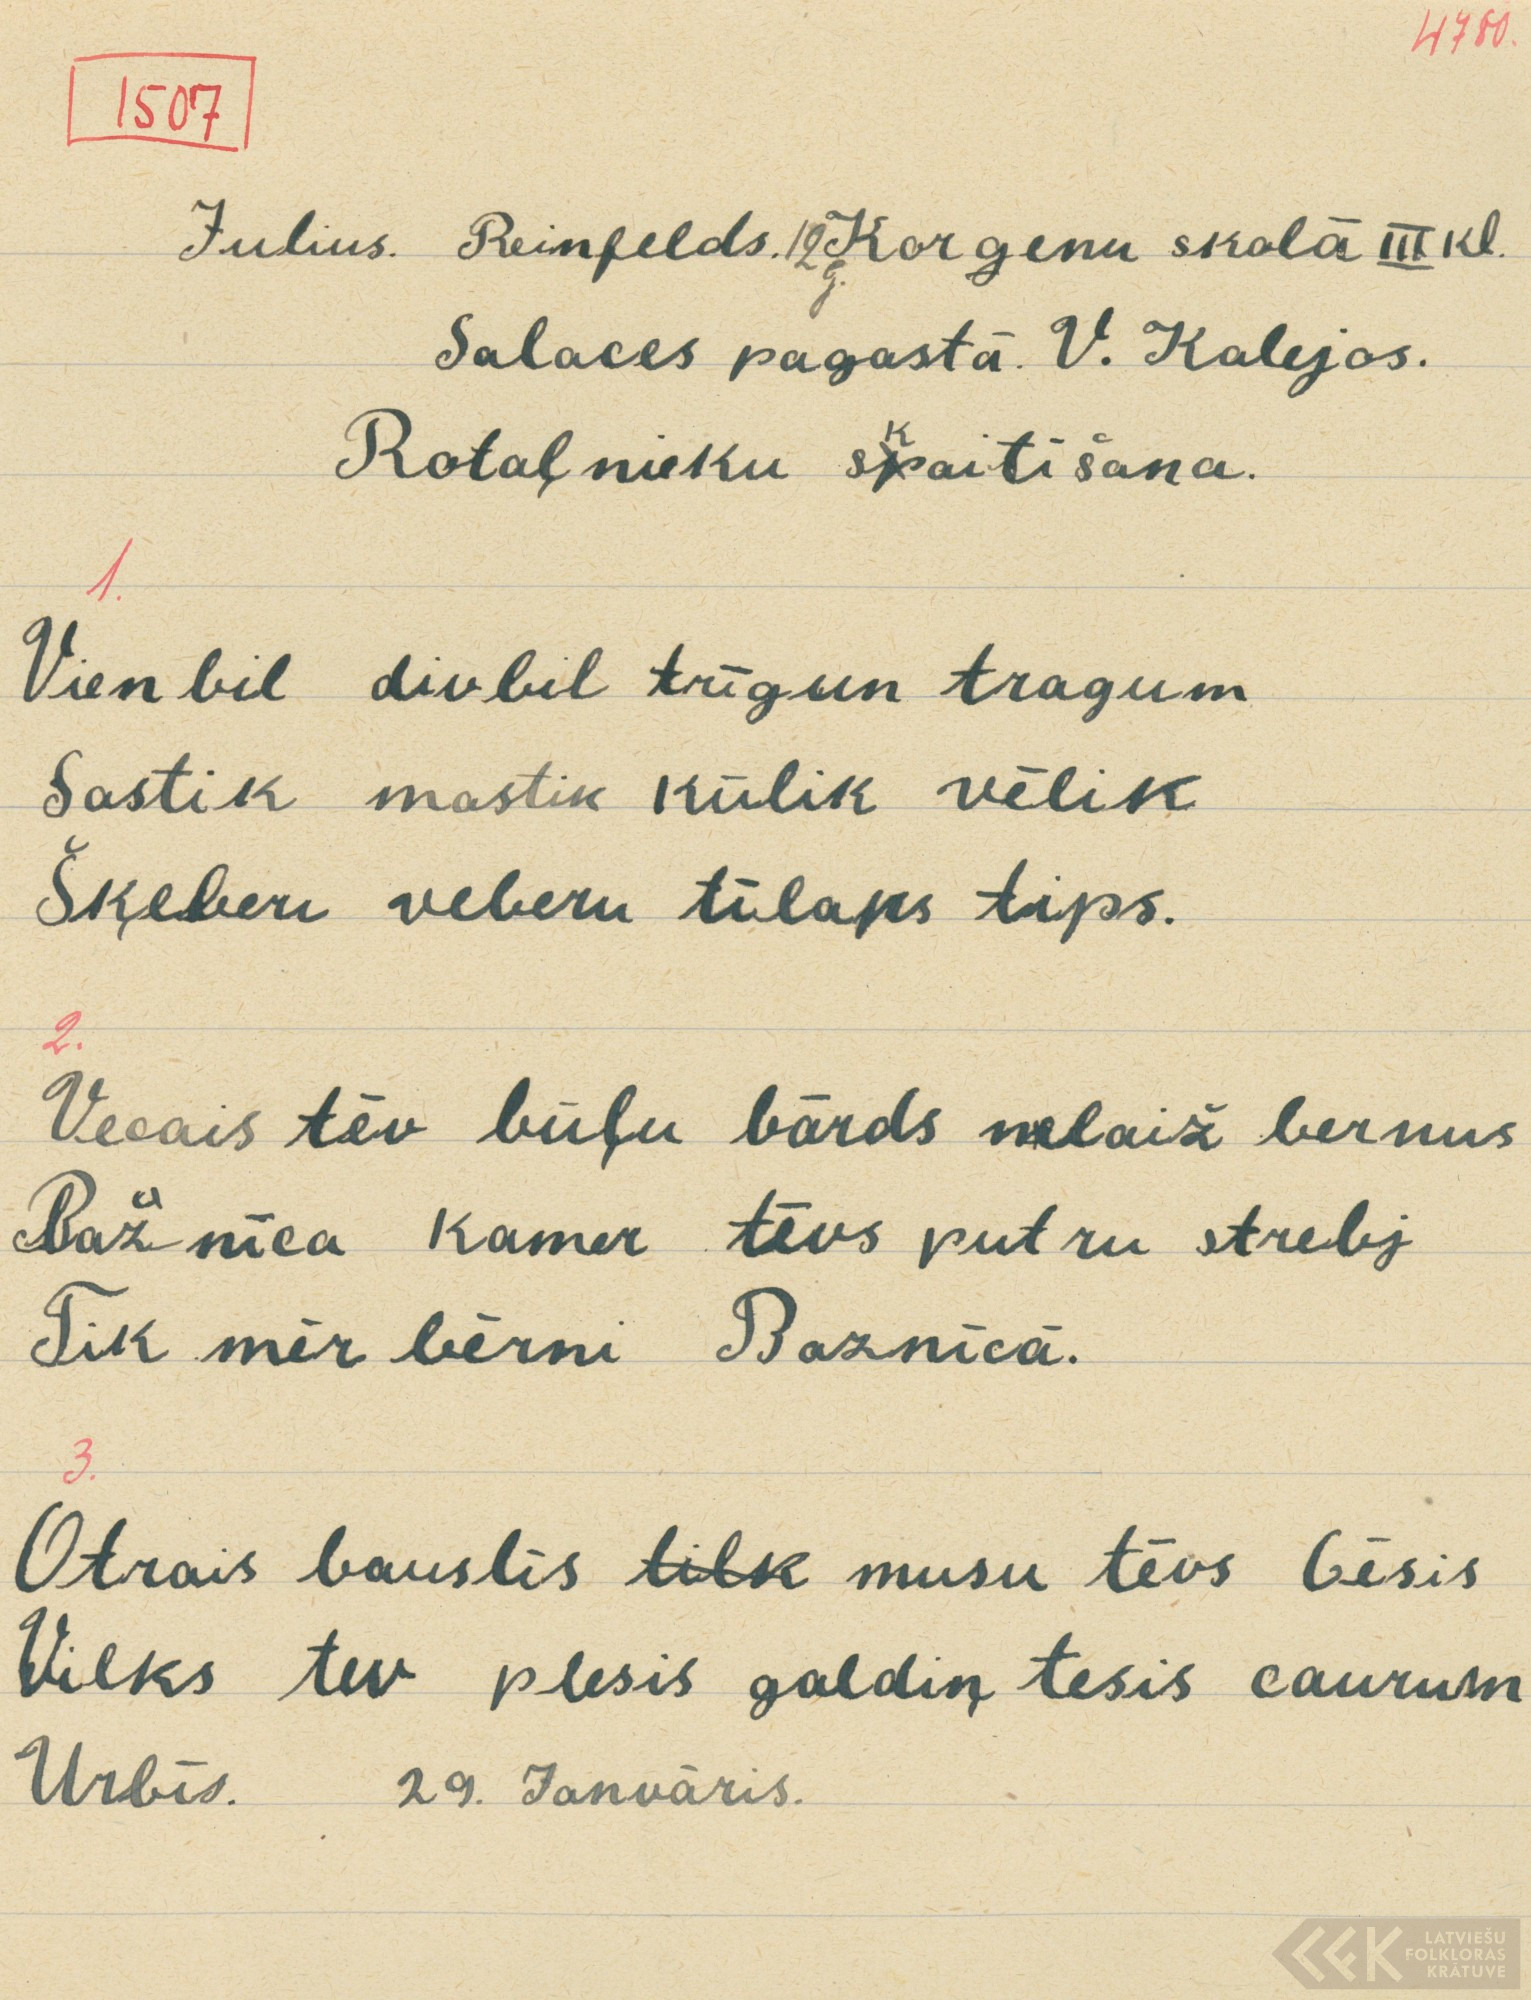 4780.
1507
Julius. Reinfelds. 12 g. Korgenu skolā III kl.
Salaces pagastā. V. Kalejos.
Rotaļnieku skaitišana.
1.
Vienbil divbil trīgun tragum
Sastik mastik kūlik vēlik
Šķeberu veberu tīlaps tips.
2.
Vecais tēv būļu bārds nelaiž bernus
Bažnīca kamer tēvs putru strebj
Tik mēr bērni Baznīcā.
3.
Otrais bauslis tilk musu tēvs bēsis
Vilks tev plesis galdiņ tesis caurum
Urbīs. 29. Janvāris.
LATVIEŠU
FOLKLORAS
KRĀTUVE